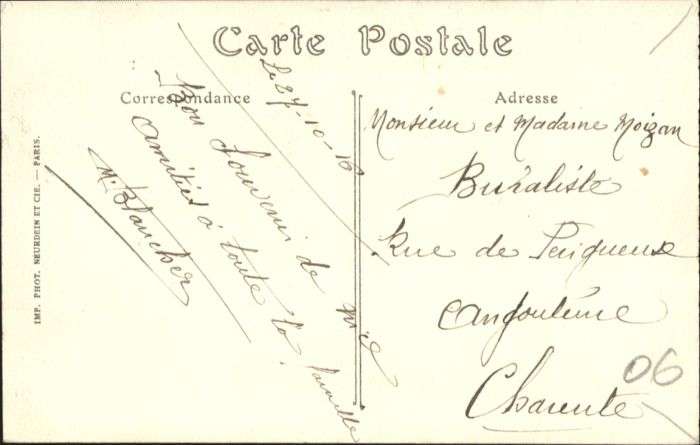 Carte Postale
Correspondance
Le 27-10-16
Bon Souvenir de
amitiés à toute la famille
M. Blancher
Adresse
Monsieur et Madame Moizan
Buraliste
Rue de Perigueux
Angoulême
Charente
06
IMP. PHOT. NEURDEIN ET CIE. — PARIS.